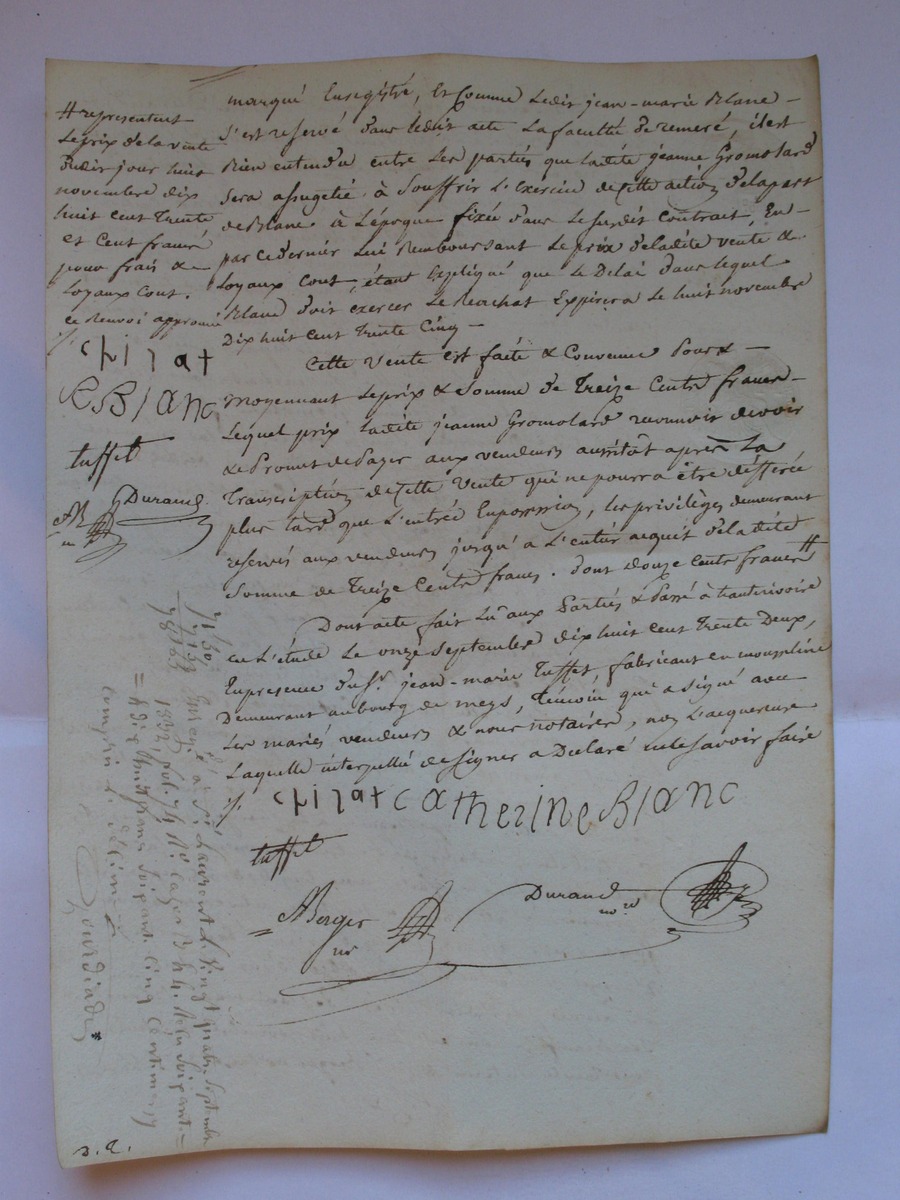 marqué Enregistré, Et Comme Ledit jean-marie Blanc -
s'est reservé dans ledit acte La faculté de remeré, il est
Bien entendu entre Les parties que ladite jeanne Gromolard
sera assugetie à Souffrir L'exercice de cette action de la part
de Blanc à L'époque fixée dans Le susdit Contrat, En -
par ce dernier Lui Remboursant Le prix de ladite vente &
Loyaux Cout, étant Expliqué que Le Délai dans lequel
Blanc doit exercer Le Rachat Expirera Le huit novembre
Dix huit cent Trente Cinq -
Cette Vente est faite & Convenue Pour & -
moyennant Le prix & Somme de Treize Cents francs -
Lequel prix Ladite jeanne Gromolard reconnoit devoir
& Promet de Payer aux vendeurs aussitôt après La
Transcription de cette Vente qui ne pourra être differée
plus tard que L'entrée En possession, les privilèges demeurant
reservés aux vendeurs jusqu'a L'entier acquit de ladite
Somme de Treize Cents francs. dont douze Cents francs #
Dont acte fait Lu aux Parties & Passé à hauterivoire
en L'étude Le onze Septembre dix huit Cent Trente Deux,
En presence du Sr. jean-marie Tuffet, fabricant en mousseline
Demeurant au bourg de meys, Témoin qui a signé avec
Les mariés vendeurs & nous notaires, non L'acquereure
Laquelle interpellée de signer a Déclaré ne le savoir faire
chizat Catherine Blanc
tuffet
Berger
nre
Durand
nore
# representent
Le prix de la vente
dudit jour huit
novembre dix
huit cent Trente
et Cent francs
pour frais &
Loyaux Cout.
ce Renvoi approuvé
chizat
C Blanc
tuffet
Durand
Enregé à St Laurent Le vingt quatre Septembre
1832, fol. 74 Ro Cazes 3 & 4. Reçu soixante
centimes
compris le décime
D. 2.